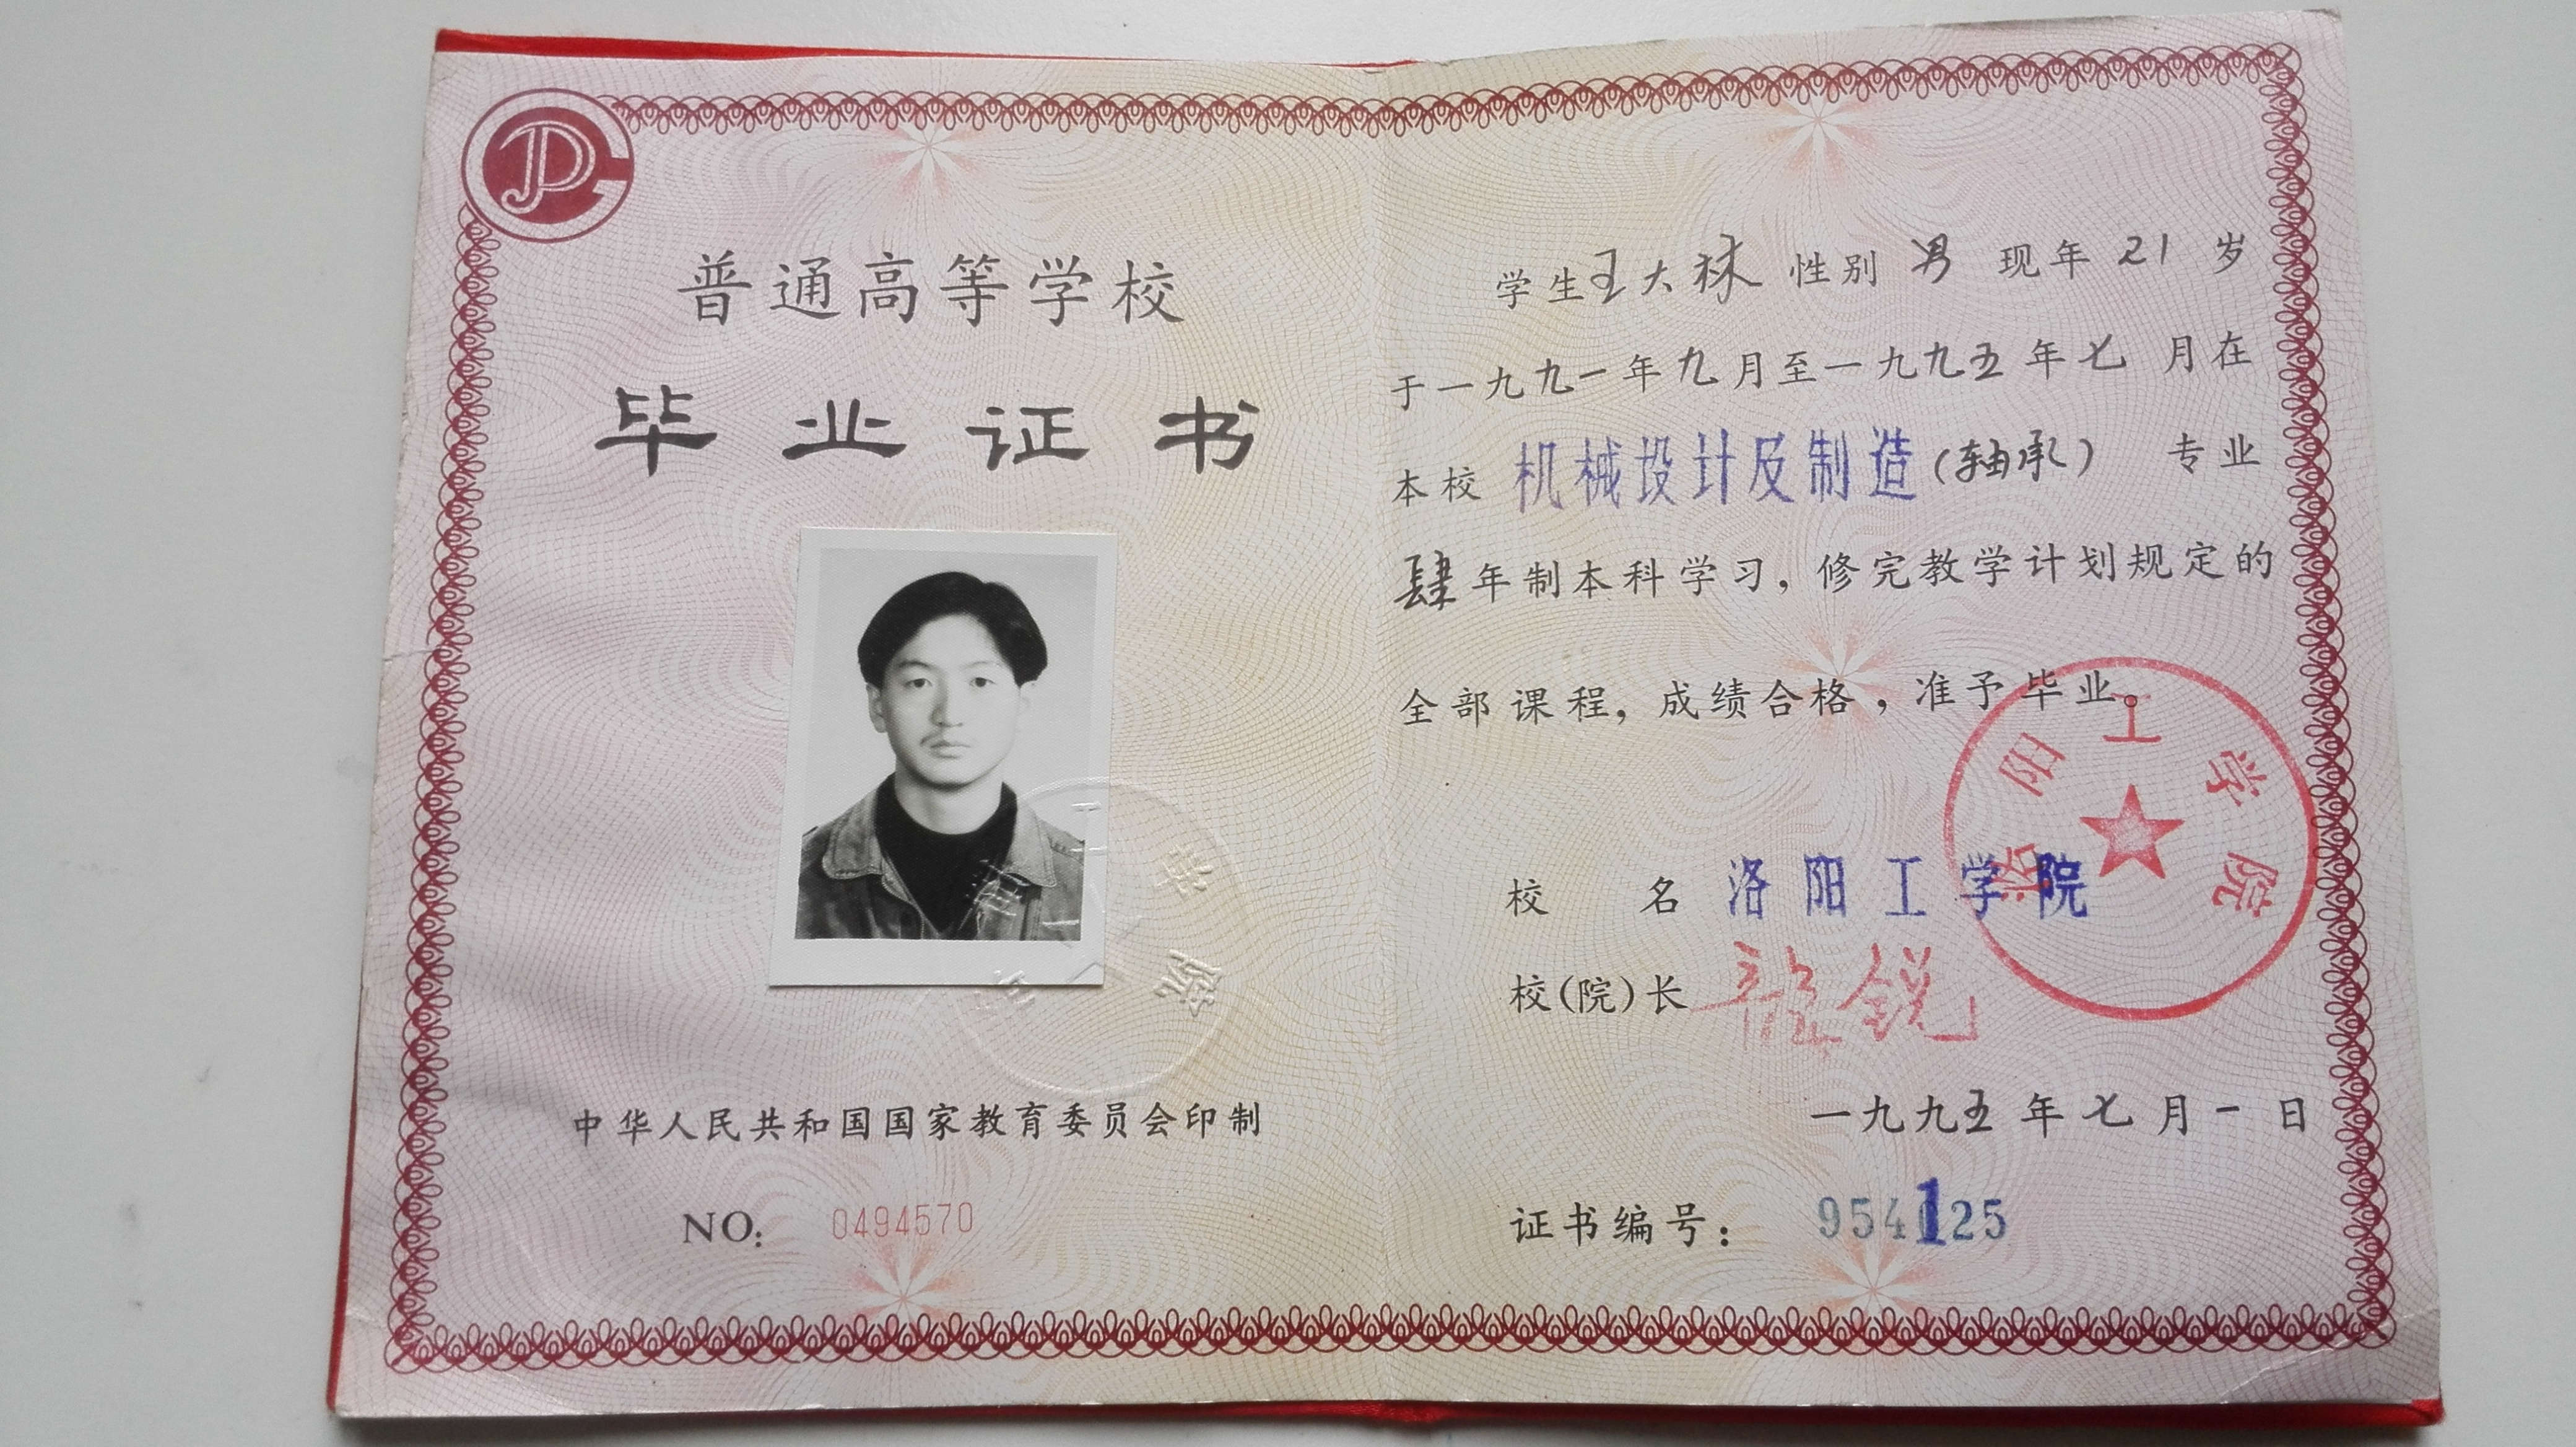 普通高等学校
毕业证书
中华人民共和国国家教育委员会印制
NO: 0494570
学生王大林 性别 男 现年 21 岁
于一九九一年九月至一九九五年七月在
本校 机械设计及制造(轴承) 专业
肆年制本科学习，修完教学计划规定的
全部课程，成绩合格，准予毕业。
洛阳工学院
校 名 洛阳工学院
校(院)长
一九九五年七月一日
证书编号： 954125